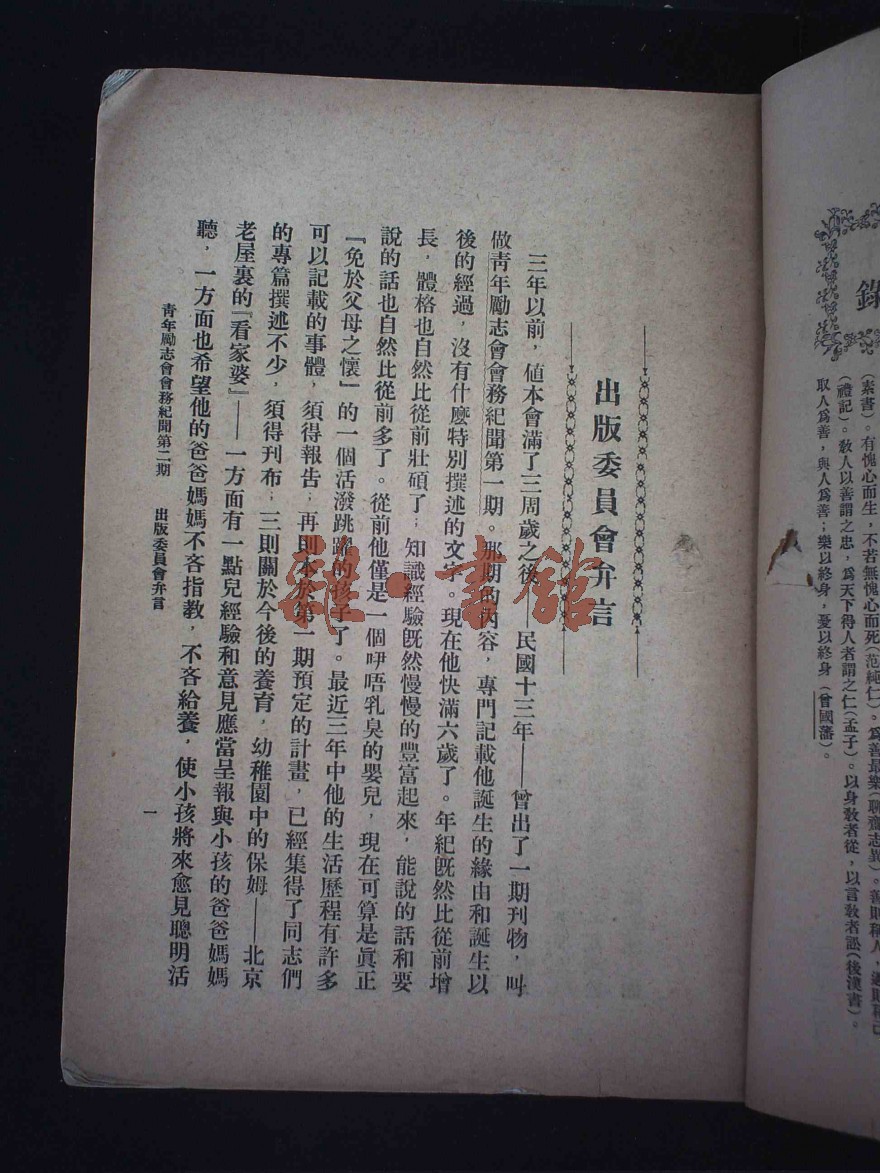 錄
（素書）。有愧心而生，不若無愧心而死（范純仁）。爲善最樂（聊齋志異）。善則稱人，過則稱己
（禮記）。敎人以善謂之忠，爲天下得人者謂之仁（孟子）。以身敎者從，以言敎者訟（後漢書）。
取人爲善，與人爲善；樂以終身，憂以終身（曾國藩）。
出版委員會弁言
三年以前，値本會滿了三周歲之後——民國十三年——曾出了一期刊物，叫
做靑年勵志會會務紀聞第一期。那期的內容，專門記載他誕生的緣由和誕生以
後的經過，沒有什麽特別撰述的文字。現在他快滿六歲了。年紀旣然比從前增
長，體格也自然比從前壯碩了；知識經驗旣然慢慢的豐富起來，能說的話和要
說的話也自然比從前多了。從前他僅是一個咿唔乳臭的嬰兒，現在可算是眞正
『免於父母之懷』的一個活潑跳躍的孩子了。最近三年中他的生活歷程有許多
可以記載的事體，須得報告；再則本於第一期預定的計畫，已經集得了同志們
的專篇撰述不少，須得刊布；三則關於今後的養育，幼稚園中的保姆——北京
老屋裏的『看家婆』——一方面有一點兒經驗和意見應當呈報與小孩的爸爸媽媽
聽，一方面也希望他的爸爸媽媽不吝指教，不吝給養，使小孩將來愈見聰明活
靑年勵志會會務紀聞第二期 出版委員會弁言
一
雜·書館